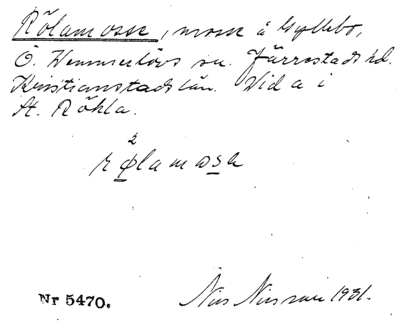 Rölamosse, mosse å Gyllebo,
Ö. Vemmerlövs sn. Järrestads hd.
Kristianstads län. Vid a i
St. Röhla.
2
rølamosa
Nr 5470. Nils Nilsson 1931.